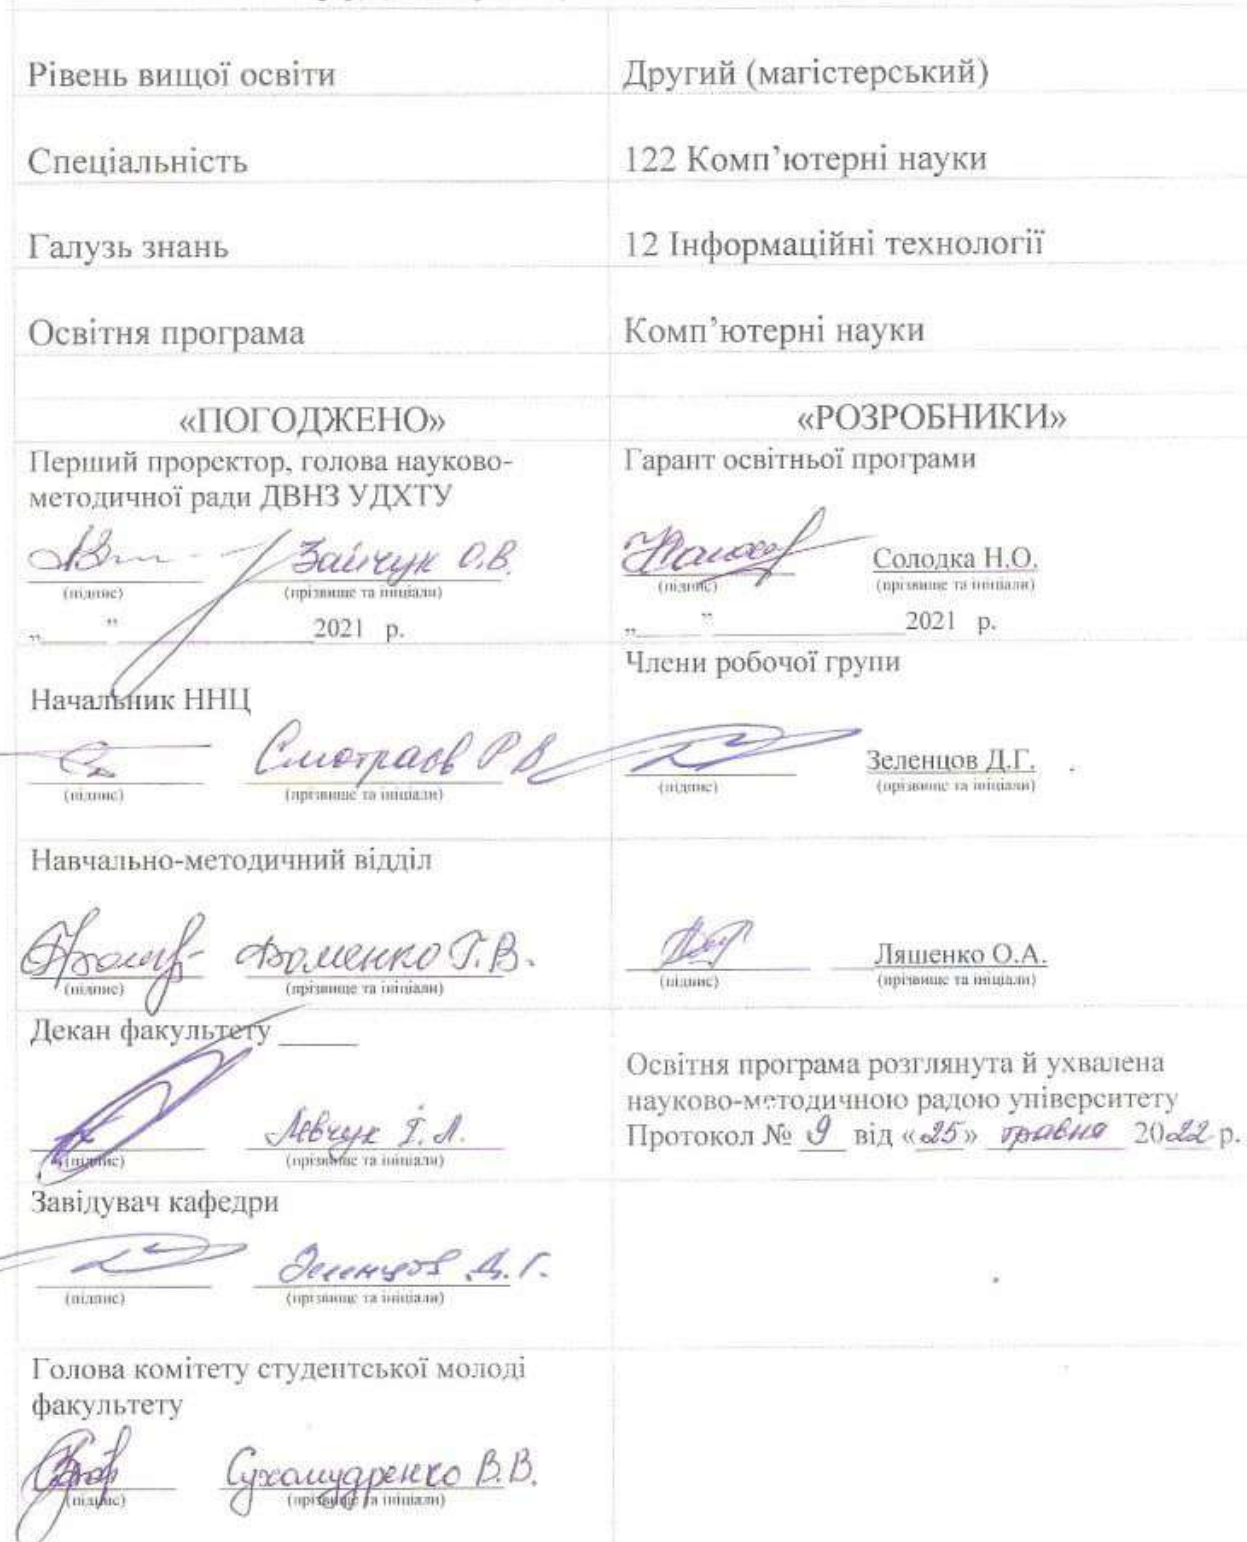 Рівень вищої освіти
Другий (магістерський)
Спеціальність
122 Комп’ютерні науки
Галузь знань
12 Інформаційні технології
Освітня програма
Комп’ютерні науки
«ПОГОДЖЕНО»
Перший проректор, голова науково-
методичної ради ДВНЗ УДХТУ
Зайчук О.В.
(підпис) (прізвище та ініціали)
„ ” 2021 р.
Начальник ННЦ
Смотраєв Р В
(підпис) (прізвище та ініціали)
Навчально-методичний відділ
Фоменко Г.В.
(підпис) (прізвище та ініціали)
Декан факультету
Левчук І. Л.
(підпис) (прізвище та ініціали)
Завідувач кафедри
Зеленцов Д.Г.
(підпис) (прізвище та ініціали)
Голова комітету студентської молоді
факультету
Сухомудренко В.В.
(підпис) (прізвище та ініціали)
«РОЗРОБНИКИ»
Гарант освітньої програми
Солодка Н.О.
(підпис) (прізвище та ініціали)
„ ” 2021 р.
Члени робочої групи
Зеленцов Д.Г.
(підпис) (прізвище та ініціали)
Ляшенко О.А.
(підпис) (прізвище та ініціали)
Освітня програма розглянута й ухвалена
науково-методичною радою університету
Протокол № 9 від «25» травня 2022 р.